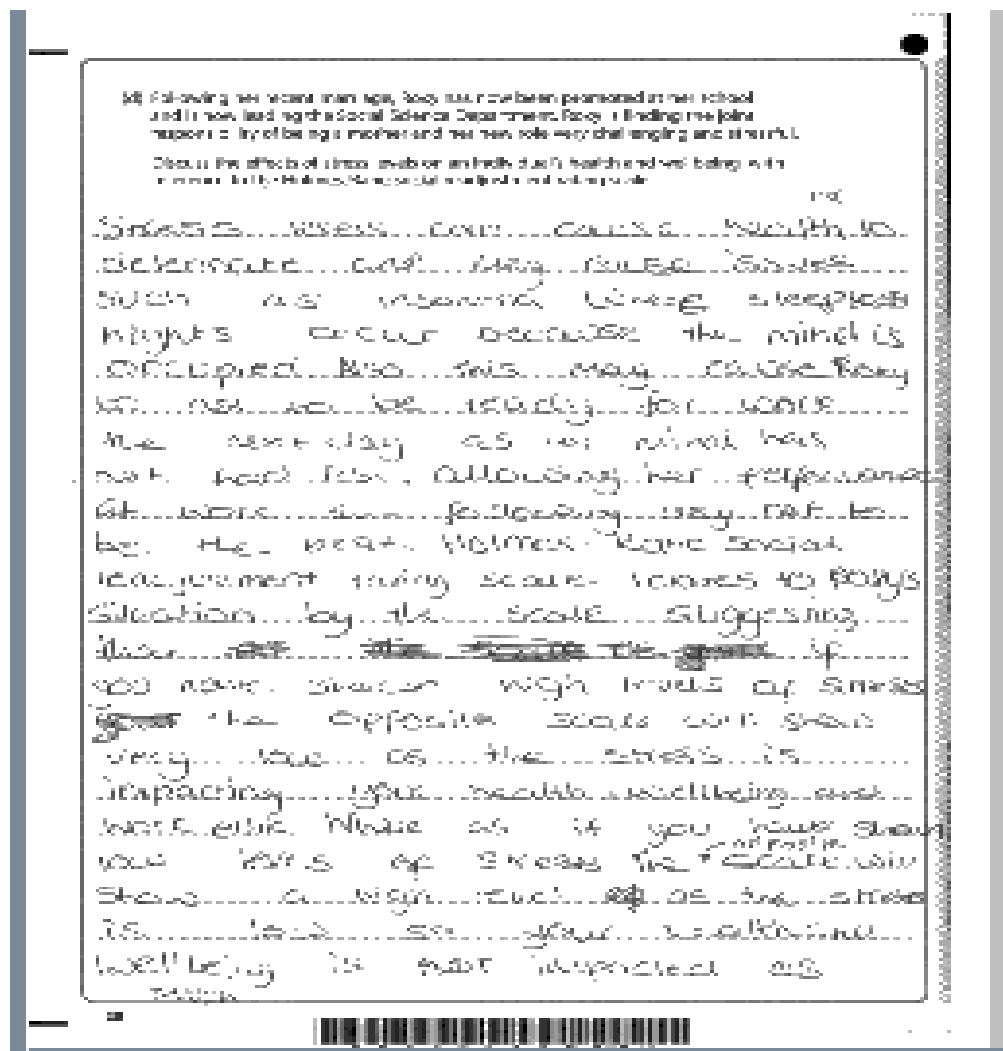 (d) Following her recent marriage, Roxy has now been promoted at her school
and is now leading the Social Science Department. Roxy is finding the joint
responsibility of being a mother and her new role very challenging and stressful.
Discuss the effects of stress levels on an individual's health and well-being with
reference to the Holmes-Rahe social readjustment rating scale.
Stress can cause health to
deteriorate and may cause issues
such as insomnia where sleepless
nights occur because the mind is
occupied. Also this may cause Roxy
to not to be ready for work
the next day as mind has
not had rest. allowing her performance
at work following day not to
be the best. Holmes-Rahe social
readjustment rating scale relates to Roxy's
situation by the scale suggesting
if
you have shown high levels of stress
the opposite scale will show
very low as the stress is
impacting your health wellbeing and
work life. Whereas if you have shown
low levels of stress the opposite scale will
show a high level as the stress
is low so your health and
wellbeing is not impacted as
much